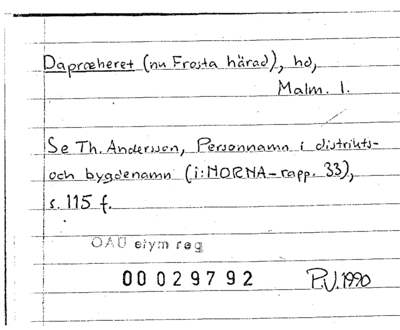 Dapræheret (nu Frosta härad), hd,
Malm. l.
Se Th. Andersson, Personnamn i distrikts-
och bygdenamn (i: NORNA-rapp. 33),
s. 115 f.
OAU etym reg
00029792 P.V. 1990